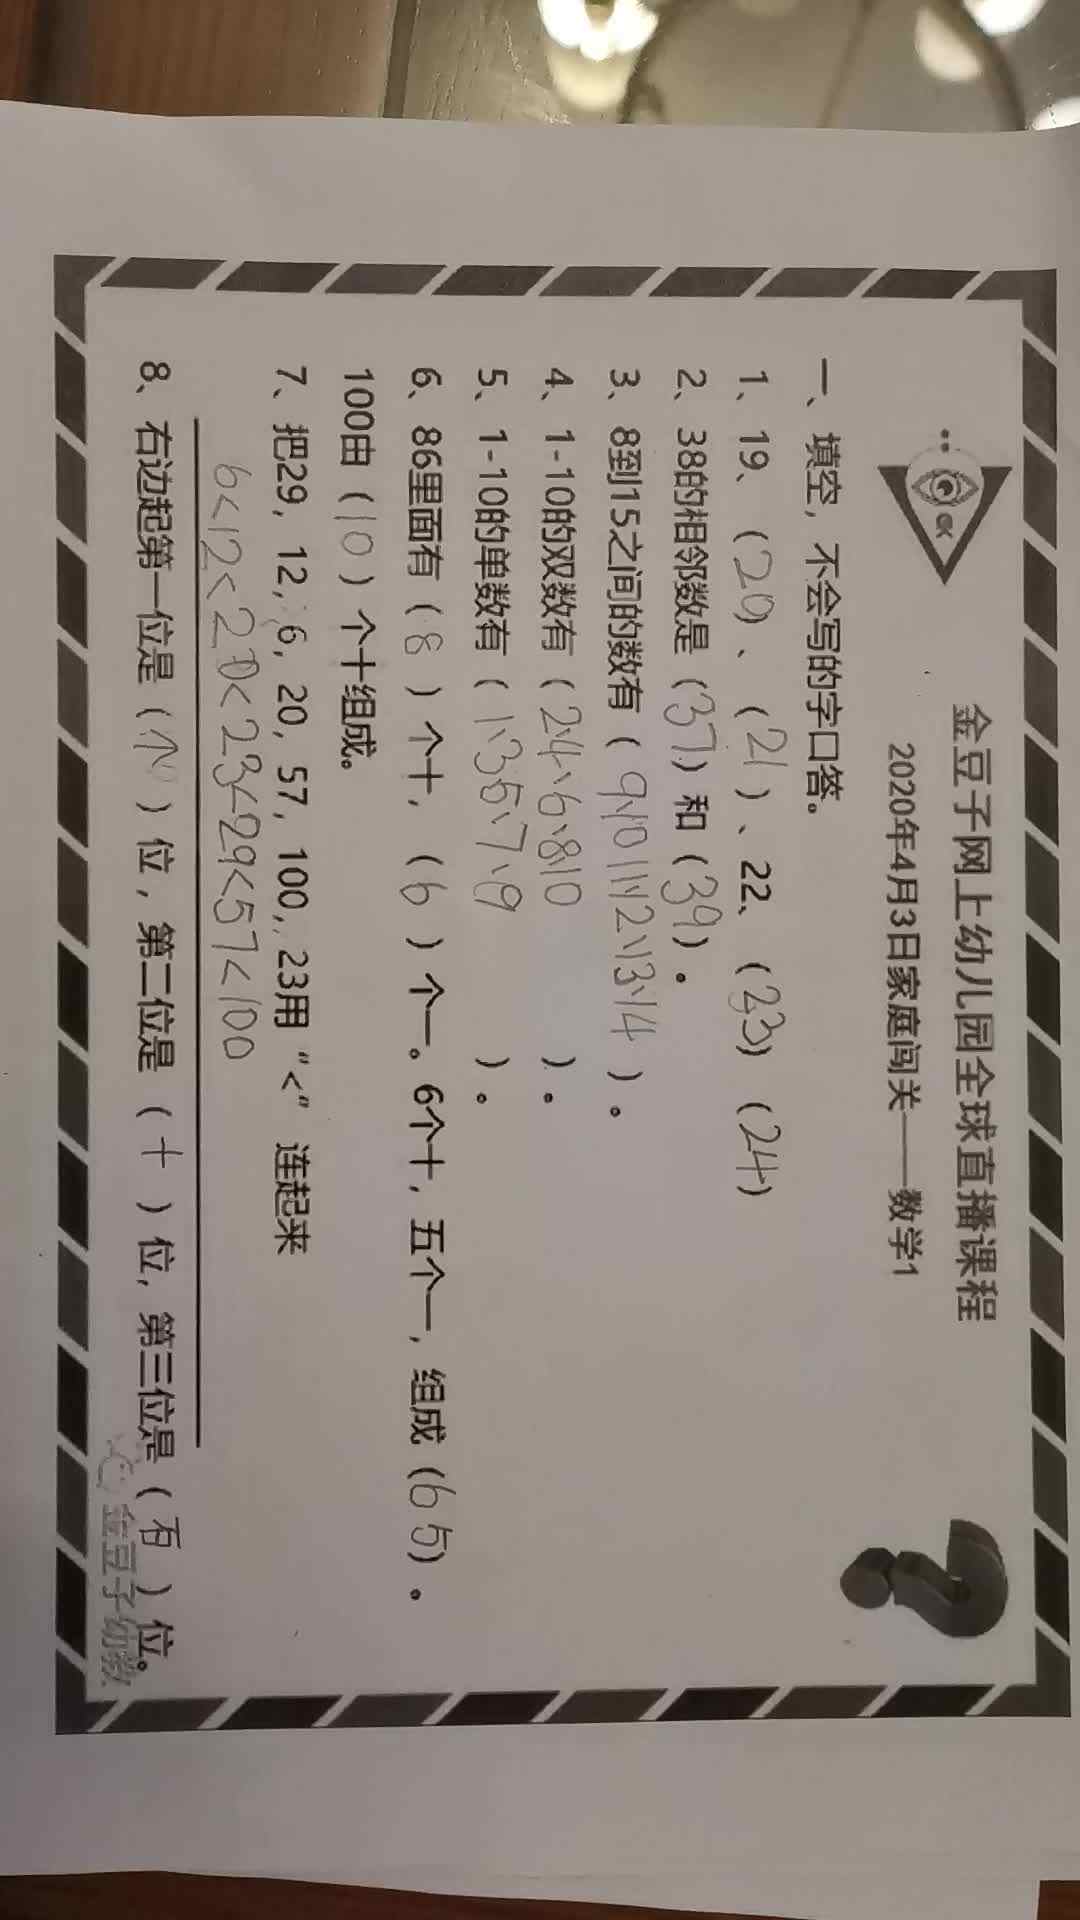 OK
金豆子网上幼儿园全球直播课程
2020年4月3日家庭闯关——数学1
一、填空，不会写的字口答。
1、19、（20）、（21）、22、（23）（24）
2、38的相邻数是（37）和（39）。
3、8到15之间的数有（9、10、11、12、13、14）。
4、1-10的双数有（2、4、6、8、10）。
5、1-10的单数有（1、3、5、7、9）。
6、86里面有（8）个十，（6）个一。6个十，五个一，组成（65）。
100由（10）个十组成。
7、把29，12，6，20，57，100，23用“<”连起来
6<12<20<23<29<57<100
8、右边起第一位是（个）位，第二位是（十）位，第三位是（百）位。
金豆子幼教